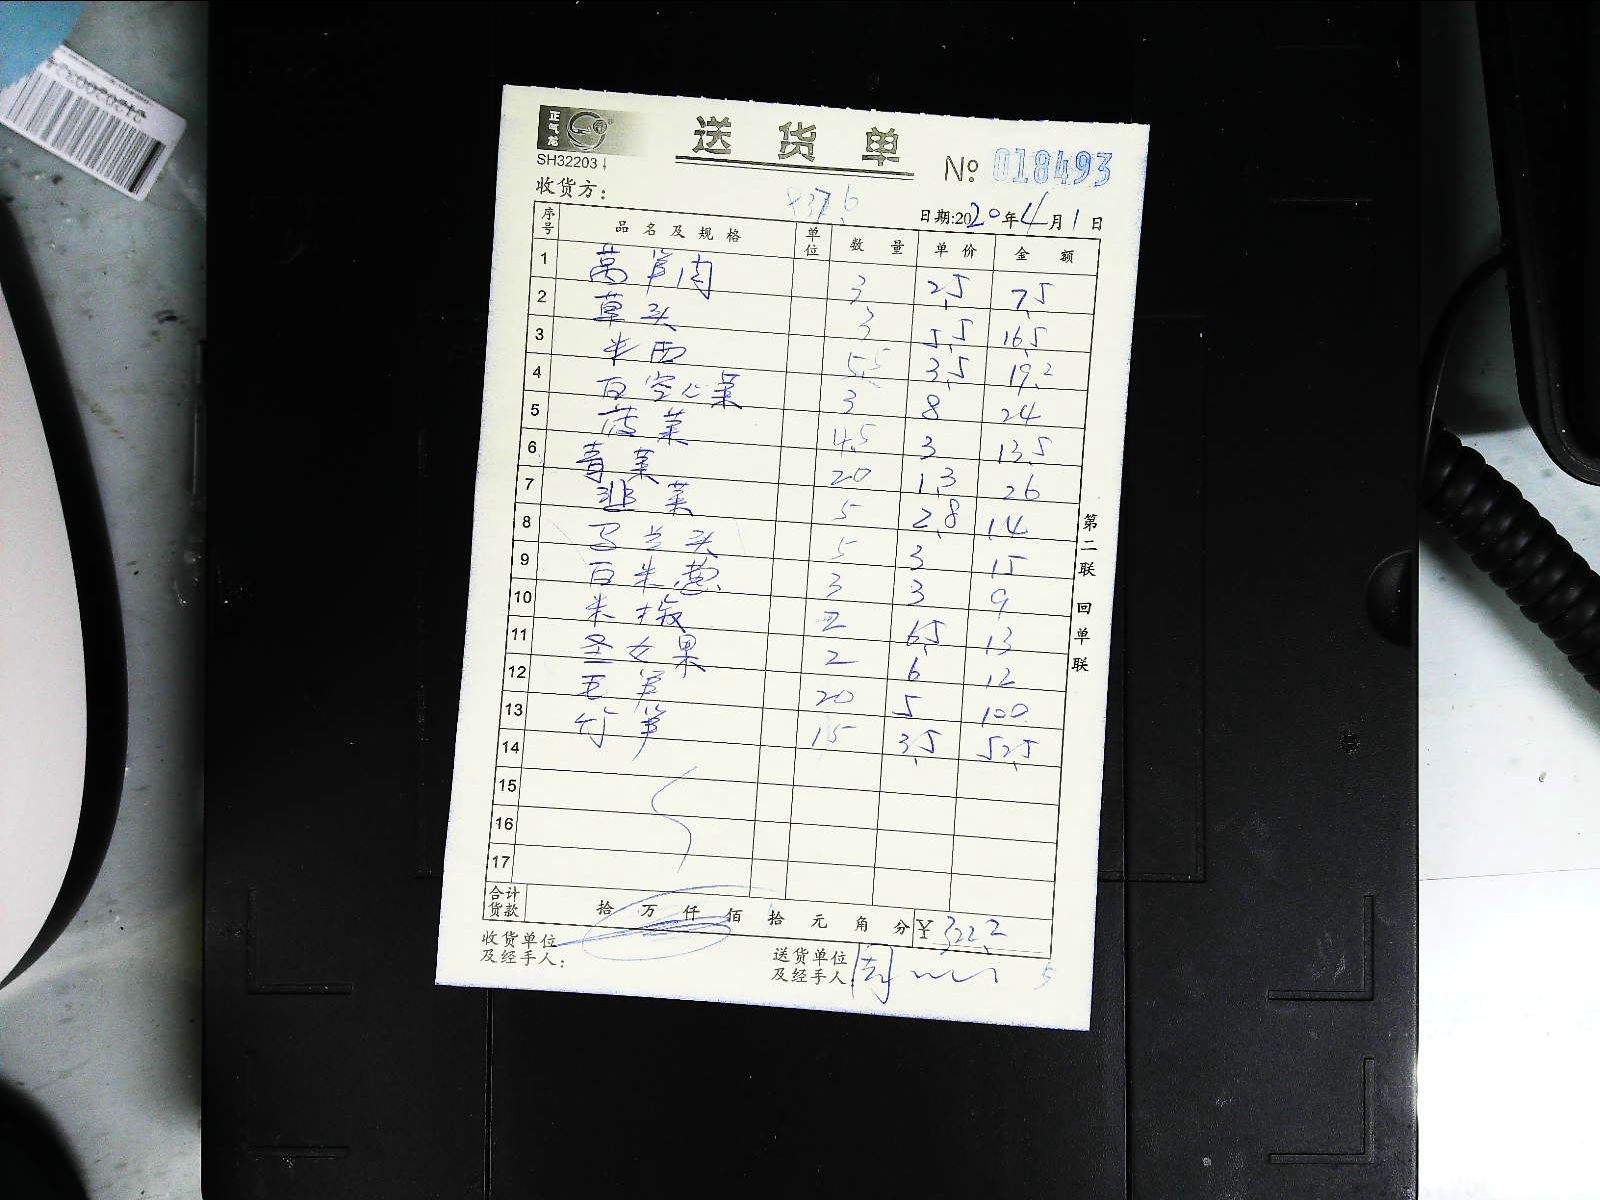 正气龙
送货单
SH32203
№ 018493
收货方:
日期:2020年4月1日
序号 品名及规格 单位 数量 单价 金额
1 莴笋肉 3 2.5 7.5
2 草头 3 5.5 16.5
3 米西 5.5 3.5 19.2
4 白空心菜 3 8 24
5 菠菜 4.5 3 13.5
6 青菜 20 1.3 26
7 韭菜 5 2.8 14
8 马兰头 5 3 15
9 白米葱 3 3 9
10 米椒 2 6.5 13
11 圣女果 2 6 12
12 毛笋 20 5 100
13 竹笋 15 3.5 52.5
14
15
16
17
合计货款 拾 万 仟 佰 拾 元 角 分 ¥322.2
收货单位及经手人:
送货单位及经手人:
第二联 回单联